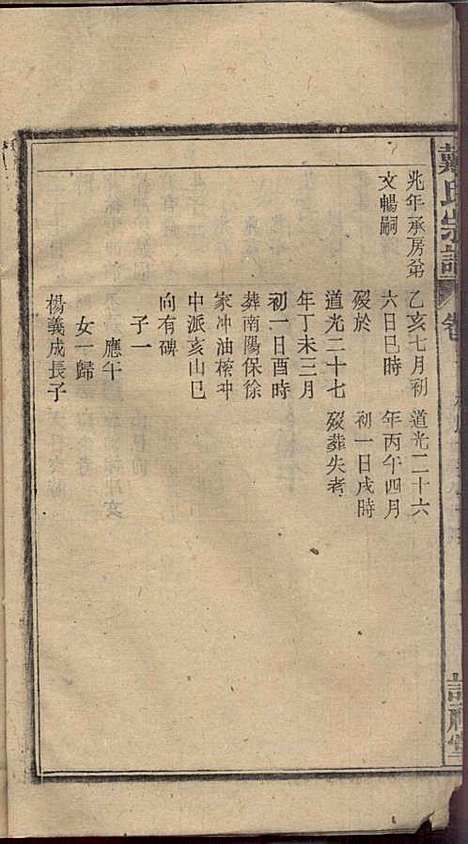 戴氏宗譜
卷
兆年承房弟
文暢嗣
乙亥七月初
六日巳時
歿於
道光二十七
年丁未三月
初一日酉時
葬南陽保徐
家冲油榨冲
中派亥山巳
向有碑
子一
應午
女一歸
楊義成長子
道光二十六
年丙午四月
初一日戌時
歿葬失考